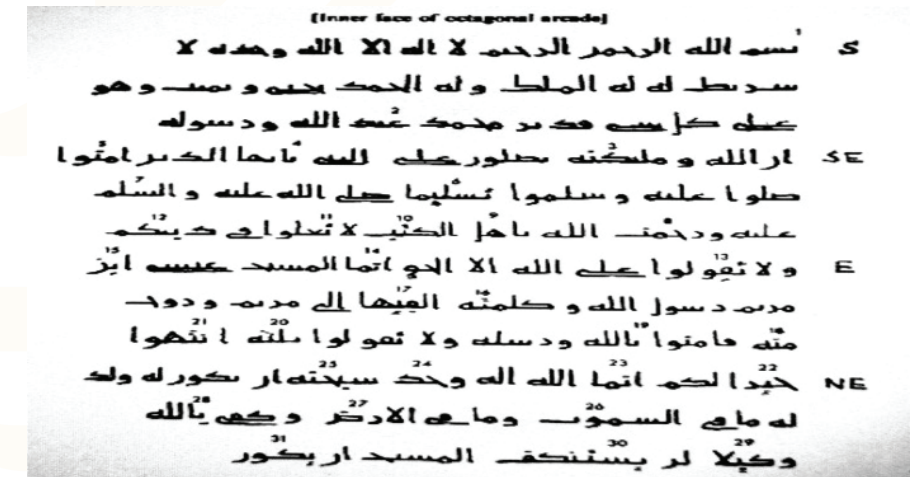 [Inner face of octagonal arcade]
S بسم الله الرحمن الرحيم لا اله الا الله وحده لا
سريك له له الملك وله الحمد يحيى و يميت و هو
على كل شى قدير محمد عبد2 الله ورسوله
SE ان الله و ملئكته يصلون على النبى يايها الذين امنوا
صلوا عليه و سلموا تسليما صلى الله عليه و السلم
عليه ورحمت الله ياهل الكتب10 لا تغلوا فى دينكم12
E و لا تقولوا13 على الله الا الحق انما14 المسيح عيسى ابن15
مريم رسول الله و كلمته16 القيها17 الى مريم و روح
منه18 فامنوا بالله19 ورسله و لا تقولوا ثلثه20 انتهوا21
NE خيرا22 لكم انما23 الله اله وحد24 سبحنه25 ان يكون له ولد
له ما فى السموت26 وما فى الارض27 و كفى بالله28
وكيلا29 لن يستنكف30 المسيح ان يكون31